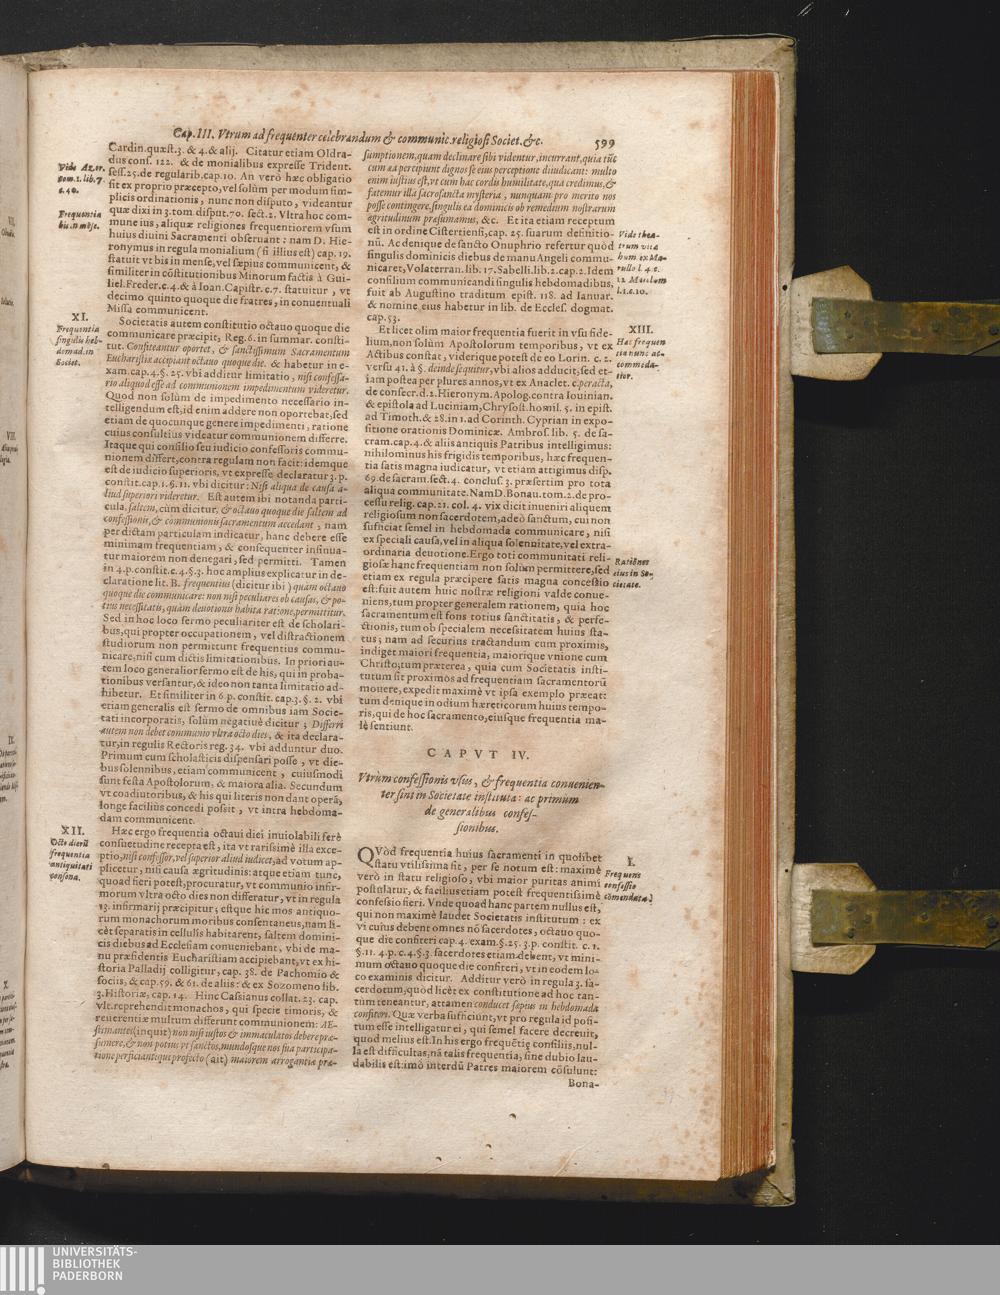 Cap. III. Vtrum ad frequenter celebrandum & communic. religiosi Societ. &c. 599
Cardin. quæst. 3. & 4. & alij. Citatur etiam Oldra-
dus cons. 122. & de monialibus expresse Trident.
sess. 25. de regularib. cap. 10. An verò hæc obligatio
sit ex proprio præcepto, vel solùm per modum sim-
plicis ordinationis, nunc non disputo, videantur
quæ dixi in 3. tom. disput. 70. sect. 2. Vltra hoc com-
mune ius, aliquæ religiones frequentiorem vsum
huius diuini Sacramenti obseruant: nam D. Hie-
ronymus in regula monialium (si illius est) cap. 19.
statuit vt bis in mense, vel sæpius communicent, &
similiter in cōstitutionibus Minorum factis à Gui-
liel. Freder. c. 4. & à Ioan. Capistr. c. 7. statuitur, vt
decimo quinto quoque die fratres, in conuentuali
Missa communicent.
Vide Azor.
tom. 1. lib. 7.
c. 40.
Frequentia
bis in mēse.
XI.
Frequentia
singulis heb-
domad. in
Societ.
Societatis autem constitutio octauo quoque die
communicare præcipit, Reg. 6. in summar. consti-
tut. Confiteantur oportet, & sanctissimum Sacramentum
Eucharistiæ accipiant octauo quoque die. & habetur in e-
xam. cap. 4. §. 25. vbi additur limitatio, nisi confessa-
rio aliquod esse ad communionem impedimentum videretur.
Quod non solùm de impedimento necessario in-
telligendum est, id enim addere non oportebat, sed
etiam de quocunque genere impedimenti, ratione
cuius consultius videatur communionem differre.
Itaque qui consilio seu iudicio confessoris commu-
nionem differt, contra regulam non facit: idemque
est de iudicio superioris, vt expresse declaratur 3. p.
constit. cap. 1. §. 11. vbi dicitur: Nisi aliqua de causa a-
liud superiori videretur. Est autem ibi notanda parti-
cula, saltem, cùm dicitur, & octauo quoque die saltem ad
confessionis, & communionis sacramentum accedant, nam
per dictam particulam indicatur, hanc debere esse
minimam frequentiam, & consequenter insinua-
tur maiorem non denegari, sed permitti. Tamen
in 4. p. constit. c. 4. §. 3. hoc amplius explicatur in de-
claratione lit. B. frequentius (dicitur ibi) quàm octauo
quoque die communicare: non nisi peculiares ob causas, & po-
tius necessitatis, quàm deuotionis habita ratione, permittitur.
Sed in hoc loco sermo peculiariter est de scholari-
bus, qui propter occupationem, vel distractionem
studiorum non permittunt frequentius commu-
nicare, nisi cum dictis limitationibus. In priori au-
tem loco generalior sermo est de his, qui in proba-
tionibus versantur, & ideo non tanta limitatio ad-
hibetur. Et similiter in 6. p. constit. cap. 3. §. 2. vbi
etiam generalis est sermo de omnibus iam Socie-
tati incorporatis, solùm negatiuè dicitur; Differri
autem non debet communio vltra octo dies, & ita declara-
tur, in regulis Rectoris reg. 34. vbi adduntur duo.
Primum cum scholasticis dispensari posse, vt die-
bus solennibus, etiam communicent, cuiusmodi
sunt festa Apostolorum, & maiora alia. Secundum
vt coadiutoribus, & his qui literis non dant operā,
longe faciliùs concedi possit, vt intra hebdoma-
dam communicent.
XII.
Octo dierū
frequentia
antiquitati
consona.
Hæc ergo frequentia octaui diei inuiolabili ferè
consuetudine recepta est, ita vt rarissimè illa exce-
ptio, nisi confessor, vel superior aliud iudicet, ad votum ap-
plicetur, nisi causa ægritudinis: atque etiam tunc,
quoad fieri potest, procuratur, vt communio infir-
morum vltra octo dies non differatur, vt in regula
13. infirmarij præcipitur; estque hic mos antiquo-
rum monachorum moribus consentaneus, nam li-
cèt separatis in cellulis habitarent, saltem domini-
cis diebus ad Ecclesiam conueniebant, vbi de ma-
nu præsidentis Eucharistiam accipiebant, vt ex hi-
storia Palladij colligitur, cap. 38. de Pachomio &
sociis, & cap. 59. & 61. de aliis: & ex Sozomeno lib.
3. Historiæ, cap. 14. Hinc Cassianus collat. 23. cap.
vlt. reprehendit monachos, qui specie timoris, &
reuerentiæ multum differunt communionem: AE-
stimantes (inquit) non nisi iustos & immaculatos debere præ-
sumere, & non potius vt sanctos, mundosque nos sua participa-
tione perficiant: qui profecto (ait) maiorem arrogantiæ præ-
sumptionem, quam declinare sibi videntur, incurrant, quia tūc
cum ea percipiunt dignos se eius perceptione diiudicant: multo
enim iustius est, vt cum hac cordis humilitate, qua credimus, &
fatemur illa sacrosancta mysteria, nunquam pro merito nos
posse contingere, singulis ea dominicis ob remedium nostrarum
ægritudinum præsumamus, &c. Et ita etiam receptum
est in ordine Cistertiensi, cap. 25. suarum definitio-
nū. Ac denique de sancto Onuphrio refertur quòd
singulis dominicis diebus de manu Angeli commu-
nicaret, Volaterran. lib. 17. Sabelli. lib. 2. cap. 2. Idem
consilium communicandi singulis hebdomadibus,
fuit ab Augustino traditum epist. 118. ad Ianuar.
& nomine eius habetur in lib. de Eccles. dogmat.
cap. 53.
Vide thea-
trum vitæ
hum. ex Ma-
rullo l. 4. c.
12. 
l. 1. c. 10.
XIII.
Hæc frequen
tia nunc ac-
commoda-
tior.
Et licet olim maior frequentia fuerit in vsu fide-
lium, non solùm Apostolorum temporibus, vt ex
Actibus constat, viderique potest de eo Lorin. c. 2.
versu 41. à §. deinde sequitur, vbi alios adducit, sed et-
iam postea per plures annos, vt ex Anaclet. c. peracta,
de consecr. d. 2. Hieronym. Apolog. contra Iouinian.
& epistola ad Luciniam, Chrysost. homil. 5. in epist.
ad Timoth. & 28. in 1. ad Corinth. Cyprian in expo-
sitione orationis Dominicæ. Ambros. lib. 5. de sa-
cram. cap. 4. & aliis antiquis Patribus intelligimus:
nihilominus his frigidis temporibus, hæc frequen-
tia satis magna iudicatur, vt etiam attigimus disp.
69. de sacram. sect. 4. conclus. 3. præsertim pro tota
aliqua communitate. Nam D. Bonau. tom. 2. de pro-
cessu relig. cap. 21. col. 4. vix dicit inueniri aliquem
religiosum non sacerdotem, adeò sanctum, cui non
sufficiat semel in hebdomada communicare, nisi
ex speciali causa, vel in aliqua solennitate, vel extra-
ordinaria deuotione. Ergo toti communitati reli-
giosæ hanc frequentiam non solùm permittere, sed
etiam ex regula præcipere satis magna concessio
est: fuit autem huic nostræ religioni valde conue-
niens, tum propter generalem rationem, quia hoc
sacramentum est fons totius sanctitatis, & perfe-
ctionis, tum ob specialem necessitatem huius sta-
tus; nam ad securius tractandum cum proximis,
indiget maiori frequentia, maiorique vnione cum
Christo; tum præterea, quia cum Societatis insti-
tutum sit proximos ad frequentiam sacramentorū
mouere, expedit maximè vt ipsa exemplo præeat:
tum denique in odium hæreticorum huius tempo-
ris, qui de hoc sacramento, eiusque frequentia ma-
lè sentiunt.
Rationes
eius in So-
cietate.
CAPVT IV.
Vtrùm confessionis vsus, & frequentia conuenien-
ter sint in Societate instituta: ac primùm
de generalibus confes-
sionibus.
I.
Frequens
confessio
commendata.
QVòd frequentia huius sacramenti in quolibet
statu vtilissima sit, per se notum est: maximè
verò in statu religioso, vbi maior puritas animi
postulatur, & facilius etiam potest frequentissimè
confessio fieri. Vnde quoad hanc partem nullus est,
qui non maximè laudet Societatis institutum: ex
vi cuius debent omnes nō sacerdotes, octauo quo-
que die confiteri cap. 4. exam. §. 25. 3. p. constit. c. 1.
§. 11. 4. p. c. 4. §. 3. sacerdotes etiam debent, vt mini-
mum octauo quoque die confiteri, vt in eodem lo-
co examinis dicitur. Additur verò in regula 3. sa-
cerdotum, quòd licèt ex constitutione ad hoc tan-
tùm teneantur, attamen conducet sæpius in hebdomada
confiteri. Quæ verba sufficiunt, vt pro regula id posi-
tum esse intelligatur ei, qui semel facere decreuit,
quod melius est. In his ergo frequētię consiliis, nul-
la est difficultas, nā talis frequentia, sine dubio lau-
dabilis est: imò interdū Patres maiorem cōsulunt:
Bona-
UNIVERSITÄTS-
BIBLIOTHEK
PADERBORN